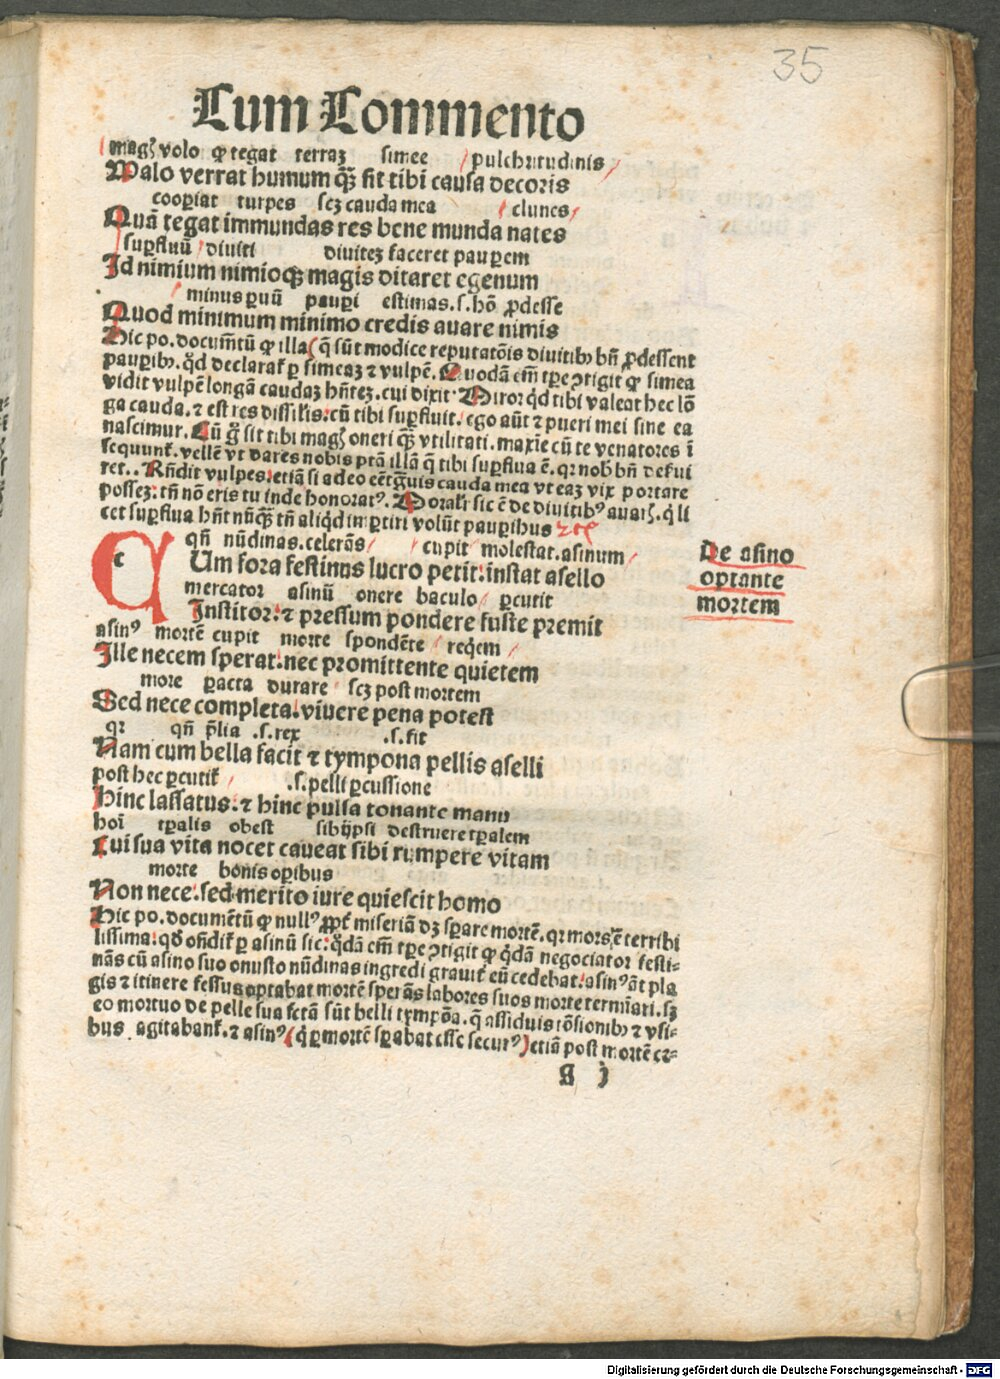 35
Cum Commento
magꝭ volo ꝙ tegat terraꝫ simee pulchritudinis
Malo verrat humum qȝ̄ sit tibi causa decoris
cooꝑiat turpes scꝫ cauda mea clunes
Quā tegat immundas res bene munda nates
suꝑfluū diuiti diuiteꝫ faceret pauꝑem
Id nimium nimioqꝫ magis ditaret egenum
minus ꝑuū pauꝑi estimas .s. hō ꝓdesse
Quod minimum minimo credis auare nimis
Hic po. documētū ꝙ illa q̄ sūt modice reputatōis diuitibꝰ bn̄ ꝓdessent
pauꝑibꝰ. qd̄ declarat̄ ꝑ simeaꝫ ⁊ vulpē. Quodā em̄ tꝑe ꝯtigit ꝙ simea
vidit vulpē longā caudaꝫ hn̄teꝫ. cui dixit. Miror qd̄ tibi valeat hec lō
ga cauda. ⁊ est res dissilis: cū tibi suꝑfluit. ego aūt ⁊ pueri mei sine ea
nascimur. Cū g̊ sit tibi magꝭ oneri qȝ̄ vtilitati. maxīe cū te venatores ī
sequunt̄. vellē vt dares nobis ptā illā q̄ tibi suꝑflua ē. qꝛ nob̄ bn̄ deẜui
ret.. Rn̄dit vulpes: etiā si adeo eēt gͣuis cauda mea vt eaꝫ vix portare
posseꝫ: tn̄ nō eris tu inde honoratꝰ. Moralr̄ sic ē de diuitibꝰ auarꝭ. qͥ li
cet suꝑflua hn̄t nūqȝ̄ tn̄ aliqd̄ impartiri volūt pauꝑibus ⁊cͣ
qn̄ nūdinas. celerās cupit molestat. asinum
c Um fora festinus lucro petit: instat asello
mercator asinū onere baculo ꝑcutit
Institor: ⁊ pressum pondere fuste premit
De asino
optante
mortem
asinꝰ mortē cupit morte spondēte req̄em
Ille necem sperat: nec promittente quietem
more ꝑacta durare scꝫ post mortem
Sed nece completa. viuere pena potest
qꝛ qn̄ p̄lia .s. rex .s. fit
Nam cum bella facit ⁊ tympona pellis aselli
post hec ꝑcutit̄ .s. pelli ꝑcussione
Hinc lassatus: ⁊ hinc pulsa tonante manu
hoī tꝑalis obest sibiipsi destruere tꝑalem
Cui sua vita nocet caueat sibi rumpere vitam
morte bonis oꝑibus
Non nece: sed merito iure quiescit homo
Hic po. documētū ꝙ nullꝰ ꝓpt̄ miseriā dꝫ sꝑare mortē. qꝛ mors ē terribi
lissima: qd̄ on̄dit̄ ꝑ asinū sic: qͥdā em̄ tꝑe ꝯtigit ꝙ qͥdā negociator festi-
nās cū asino suo onusto nūdinas ingredi grauit̄ eū cedebat. asinꝰ āt pla
gis ⁊ itinere fessus optabat mortē sperās labores suos morte terminari. sꝫ
eo mortuo de pelle sua fcā sūt belli tympōa. q̄ assiduis tōsionibꝰ ⁊ vsi-
bus agitabant̄. ⁊ asinꝰ (qͥ ꝑ mortē sꝑabat esse securꝰ) etiā post mortē cr-
g j
Digitalisierung gefördert durch die Deutsche Forschungsgemeinschaft - DFG